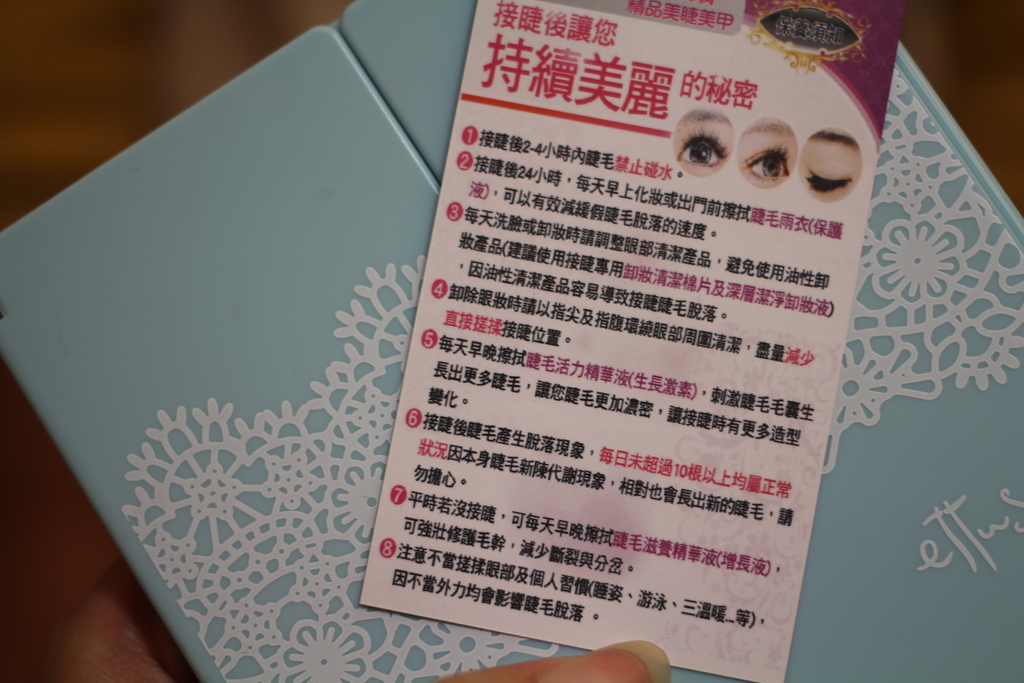 精品美睫美甲
保養須知
接睫後讓您
持續美麗的秘密
1 接睫後2-4小時內睫毛禁止碰水。
2 接睫後24小時，每天早上化妝或出門前擦拭睫毛雨衣(保護
液)，可以有效減緩假睫毛脫落的速度。
3 每天洗臉或卸妝時請調整眼部清潔產品，避免使用油性卸
妝產品(建議使用接睫專用卸妝清潔棉片及深層潔淨卸妝液)
，因油性清潔產品容易導致接睫睫毛脫落。
4 卸除眼妝時請以指尖及指腹環繞眼部周圍清潔，盡量減少
直接搓揉接睫位置。
5 每天早晚擦拭睫毛活力精華液(生長激素)，刺激睫毛毛囊生
長出更多睫毛，讓您睫毛更加濃密，讓接睫時有更多造型
變化。
6 接睫後睫毛產生脫落現象，每日未超過10根以上均屬正常
狀況因本身睫毛新陳代謝現象，相對也會長出新的睫毛，請
勿擔心。
7 平時若沒接睫，可每天早晚擦拭睫毛滋養精華液(增長液)，
可強壯修護毛幹，減少斷裂與分岔。
8 注意不當搓揉眼部及個人習慣(睡姿、游泳、三溫暖...等)，
因不當外力均會影響睫毛脫落。